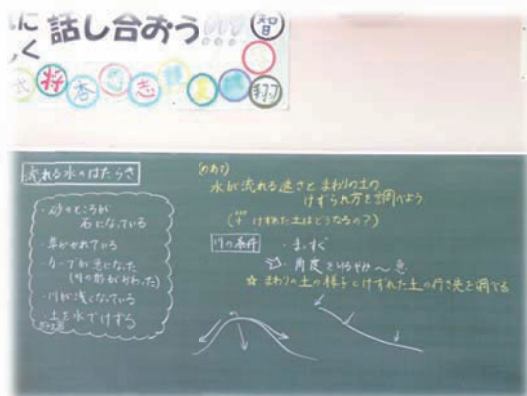 に 話し合おう!!! 智
く
将 香 志 夏 翔
流れる水のはたらき
・砂のところが
石になっている
・草がかれている
・カーブが急になった
(川の形がかわった)
・川が浅くなっている
・土を水でけずる
(めあて)
水が流れる速さとまわりの土の
けずられ方を調べよう
(+ けずれた土はどうなるの?)
川の条件 ・まっすぐ
・角度をゆるやか〜急
☆ まわりの土の様子とけずれた土の行き先を調べる